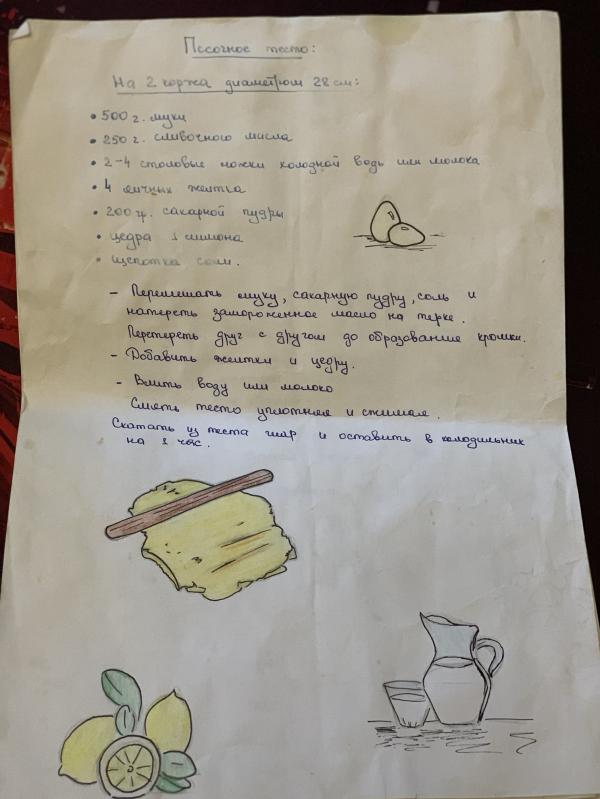 Песочное тесто:
На 2 коржа диаметром 28 см:
• 500 г. муки
• 250 г. сливочного масла
• 2-4 столовые ложки холодной воды или молока
• 4 яичных желтка
• 200 гр. сахарной пудры
• цедра 1 лимона
• щепотка соли.
- Перемешать муку, сахарную пудру, соль и
натереть замороженное масло на терке.
Перетереть друг с другом до образование крошки.
- Добавить желтки и цедру.
- Влить воду или молоко
Смять тесто уплотняя и сжимая.
Скатать из теста шар и оставить в холодильник
на 1 час.